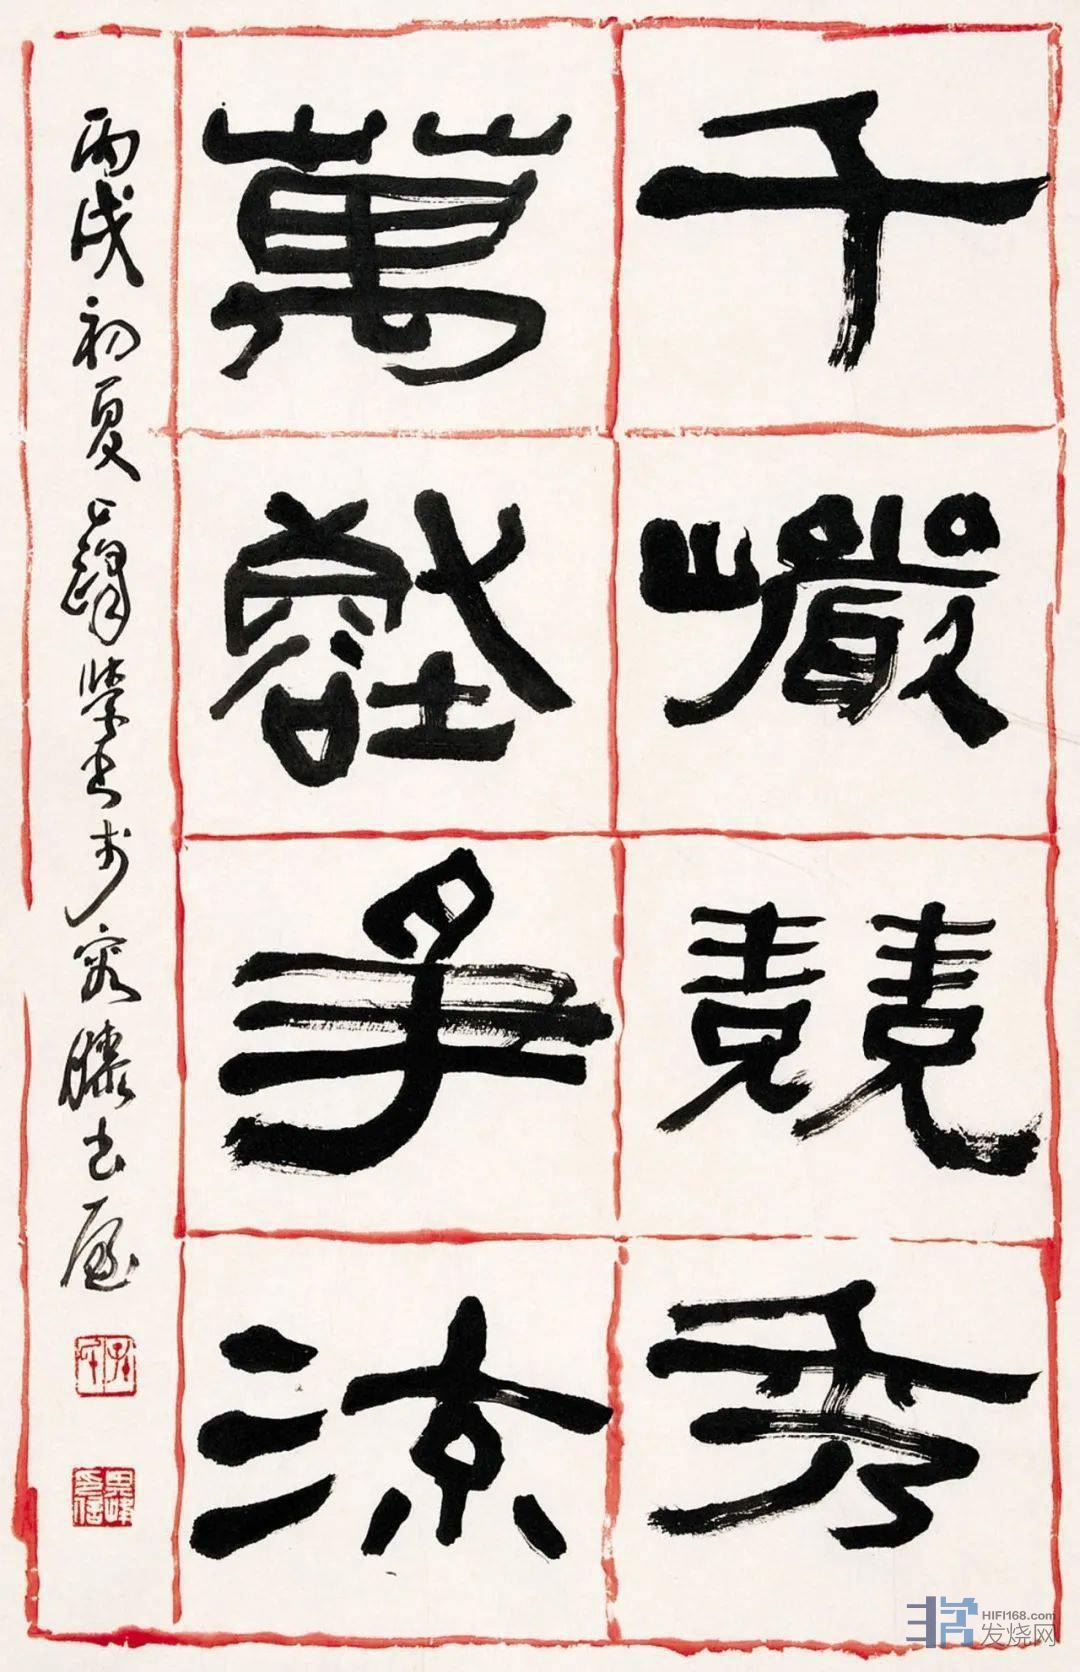 千巖競秀
萬壑爭流
丙戌初夏其峰學書於容膝書屋
HIFI168.com
发烧网